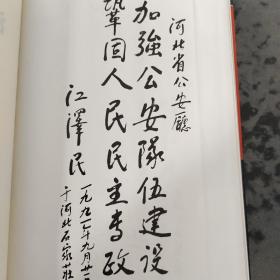 河北省公安廳
加強公安隊伍建設
鞏固人民民主专政
江澤民
一九九一年九月廿二
于河北石家庄